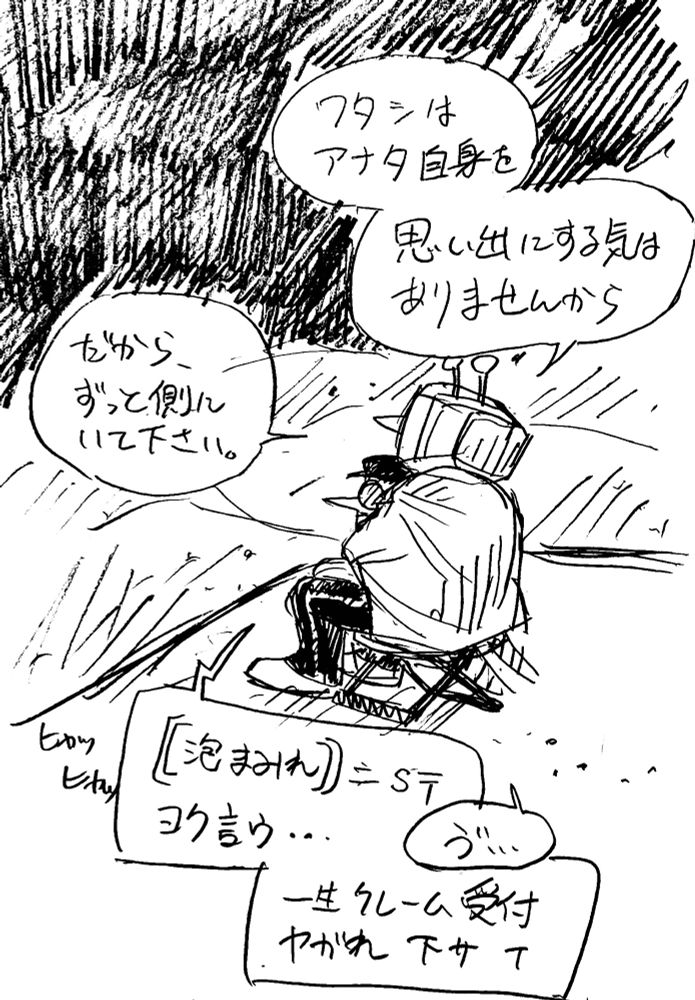 ワタシは
アナタ自身を
思い出にする気は
ありませんから
だから、
ずっと側に
いて下さい。
[[泡まみれ]]ニST
ヨク言ウ...
ヴ...
一生クレーム受付
ヤがれ下サT